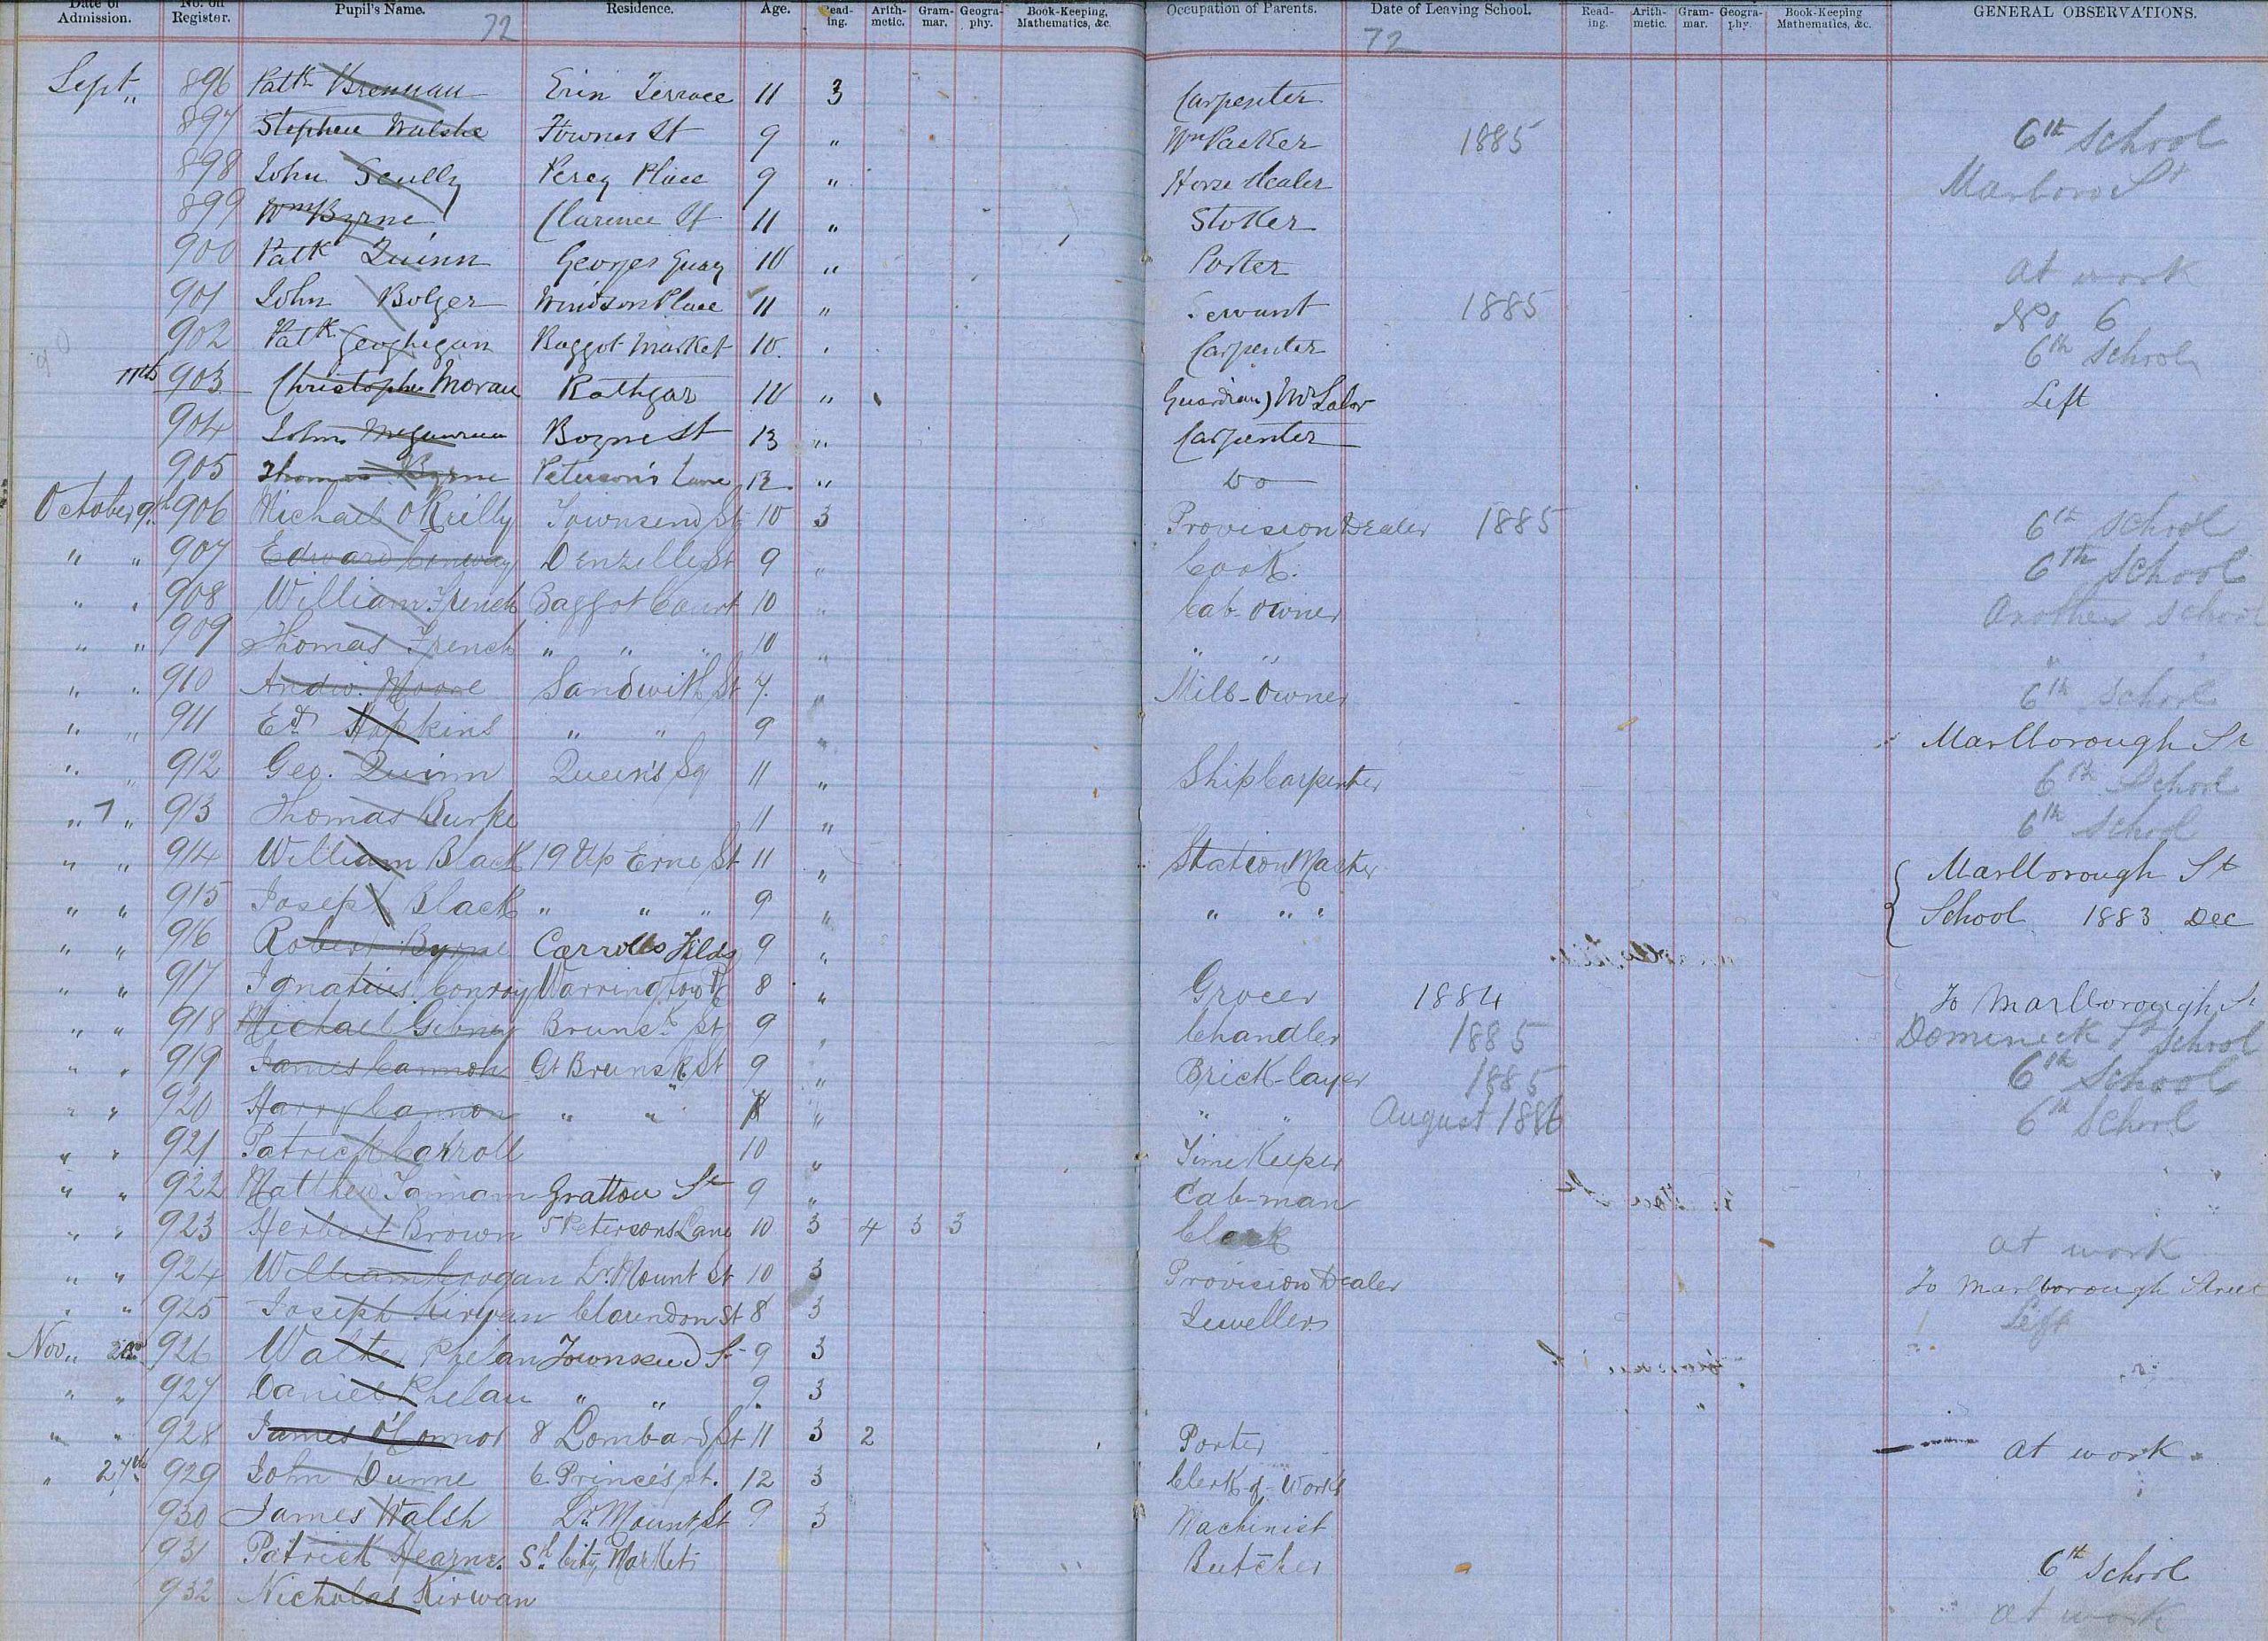 Date of Admission. No. on Register. Pupil's Name. Residence. Age. Read-ing. Arith-metic. Gram-mar. Geogra-phy. Book-Keeping, Mathematics, &c. Occupation of Parents. Date of Leaving School. Read-ing. Arith-metic. Gram-mar. Geogra-phy. Book-Keeping Mathematics, &c. GENERAL OBSERVATIONS.
72 72
Sept " 896 Patk Brennan Erin Terrace 11 3 Carpenter
897 Stephen Walshe Fownes St 9 " Wm Packer 1885 6th School
898 John Scully Percy Place 9 " Horse dealer Marlboro St
899 Wm Byrne Clarence St 11 " Stoker
900 Patk Quinn Georges Quay 10 " Porter at work
901 John Bolger Windsor Place 11 " Servant 1885 No 6
902 Patk Geoghegan Baggot Market 10 " Carpenter 6th School
11th 903 Christopher Moran Rathgar 10 " Guardian) Mr Lalor Left
904 John McGowran Boyne St 13 " Carpenter
905 Thomas Byrne Peterson's Lane 12 " Do
October 9th 906 Michael O'Reilly Townsend St 10 3 Provision Dealer 1885 6th School
" " 907 Edward Conway Denzelle St 9 " Cook. 6th School
" " 908 William French Baggot Court 10 " Cab-owner Another school
" " 909 Thomas French " " " 10 " " " "
" " 910 Andw. Moore Sandwith St 7. " Mill-Owner 6th School
" " 911 Ed. Hopkins " " 9 " Marlborough St
" " 912 Geo. Quinn Queen's Sq 11 " Ship Carpenter 6th School
" 7 " 913 Thomas Burke 11 " 6th School
" " 914 William Black 19 Up Erne St 11 " Station Master { Marlborough St
" " 915 Joseph Black " " " 9 " " " " School 1883 Dec
" " 916 Robert Byrne Carrolls Filds 9 "
" " 917 Ignatius Conroy Warrington Pl 8 " Grocer 1884 To Marlborough St
" " 918 Michael Gibney Brunsk St 9 " Chandler 1885 Dominick St School
" " 919 James Cannon Gt Brunsk St 9 " Brick-layer 1885 6th School
" " 920 Harry Cannon " " 7 " " " August 1886 6th School
" " 921 Patrick Carroll 10 " Time Keeper
" " 922 Matthew Tannam Grattan St 9 " Cab-man
" " 923 Herbert Brown 5 Petersons Lane 10 3 4 3 3 Clerk at work
" " 924 William Coogan Lr. Mount St 10 3 Provision Dealer To Marlborough Street
" " 925 Joseph Kirwan Clarendon St 8 3 Jeweller Left
Nov " 926 Walter Phelan Townsend St 9 3
" " 927 Daniel Phelan " " 9. 3
" " 928 James O'Connor 8 Lombard St 11 3 2 Porter at work
" 27th 929 John Dunne 6 Princes st. 12 3 Clerk of Works
930 James Walsh Lr Mount St 9 3 Machinist
931 Patrick Hearne. Sth City Market Butcher 6th School
932 Nicholas Kirwan at work